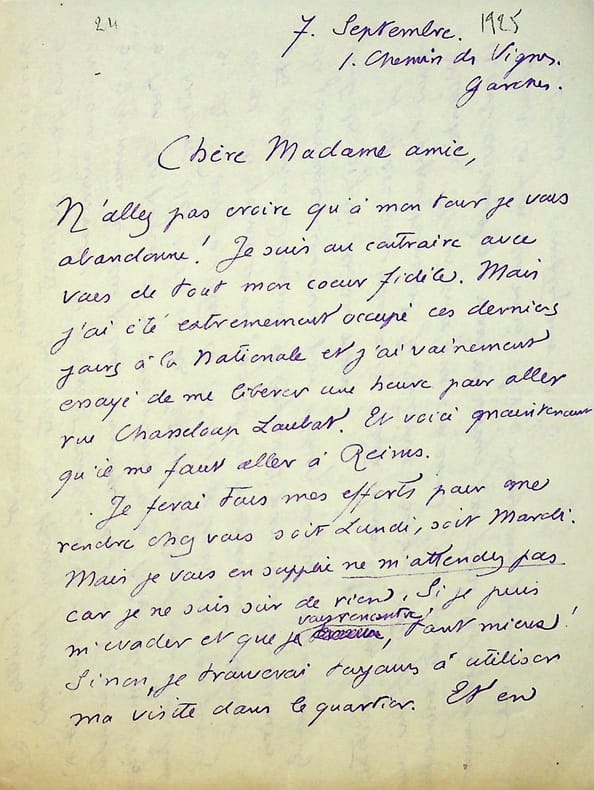 24
7. Septembre. 1925
1. Chemin des Vignes.
Garches.
Chère Madame amie,
N'allez pas croire qu'à mon tour je vous
abandonne! Je suis au contraire avec
vous de tout mon coeur fidèle. Mais
j'ai été extrêmement occupé ces derniers
jours à la Nationale et j'ai vainement
essayé de me libérer une heure pour aller
rue Chasseloup Laubat. Et voici maintenant
qu'il me faut aller à Reims.
Je ferai tous mes efforts pour me
rendre chez vous soit Lundi, soit Mardi.
Mais je vous en supplie ne m'attendez pas
car je ne suis sûr de rien. Si je puis
m'évader et que je vous rencontre, tant mieux!
Sinon, je trouverai toujours à utiliser
ma visite dans le quartier. Et en